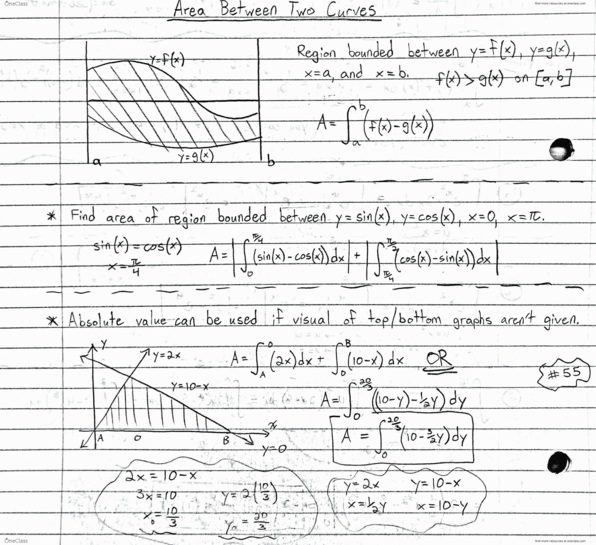 OneClass
find more resources at oneclass.com
Area Between Two Curves
y=f(x)
y=g(x)
a
b
Region bounded between y=f(x), y=g(x),
x=a, and x=b. f(x)>g(x) on [a,b]
A=∫_a^b (f(x)-g(x))
* Find area of region bounded between y=sin(x), y=cos(x), x=0, x=π.
sin(x)=cos(x)
x=π/4
A=|∫_0^{π/4} (sin(x)-cos(x))dx| + |∫_{π/4} (cos(x)-sin(x))dx|
* Absolute value can be used if visual of top/bottom graphs aren't given.
y
y=2x
y=10-x
x
A
O
B
y=0
A=∫_A^0 (2x)dx + ∫_0^B (10-x)dx OR
#55
A=∫_0^{20/3} ((10-y)-½y)dy
A=∫_0^{20/3} (10-3/2y)dy
2x=10-x
3x=10
x₀=10/3
y=2(10/3)
y₀=20/3
y=2x y=10-x
x=½y x=10-y
OneClass
find more resources at oneclass.com